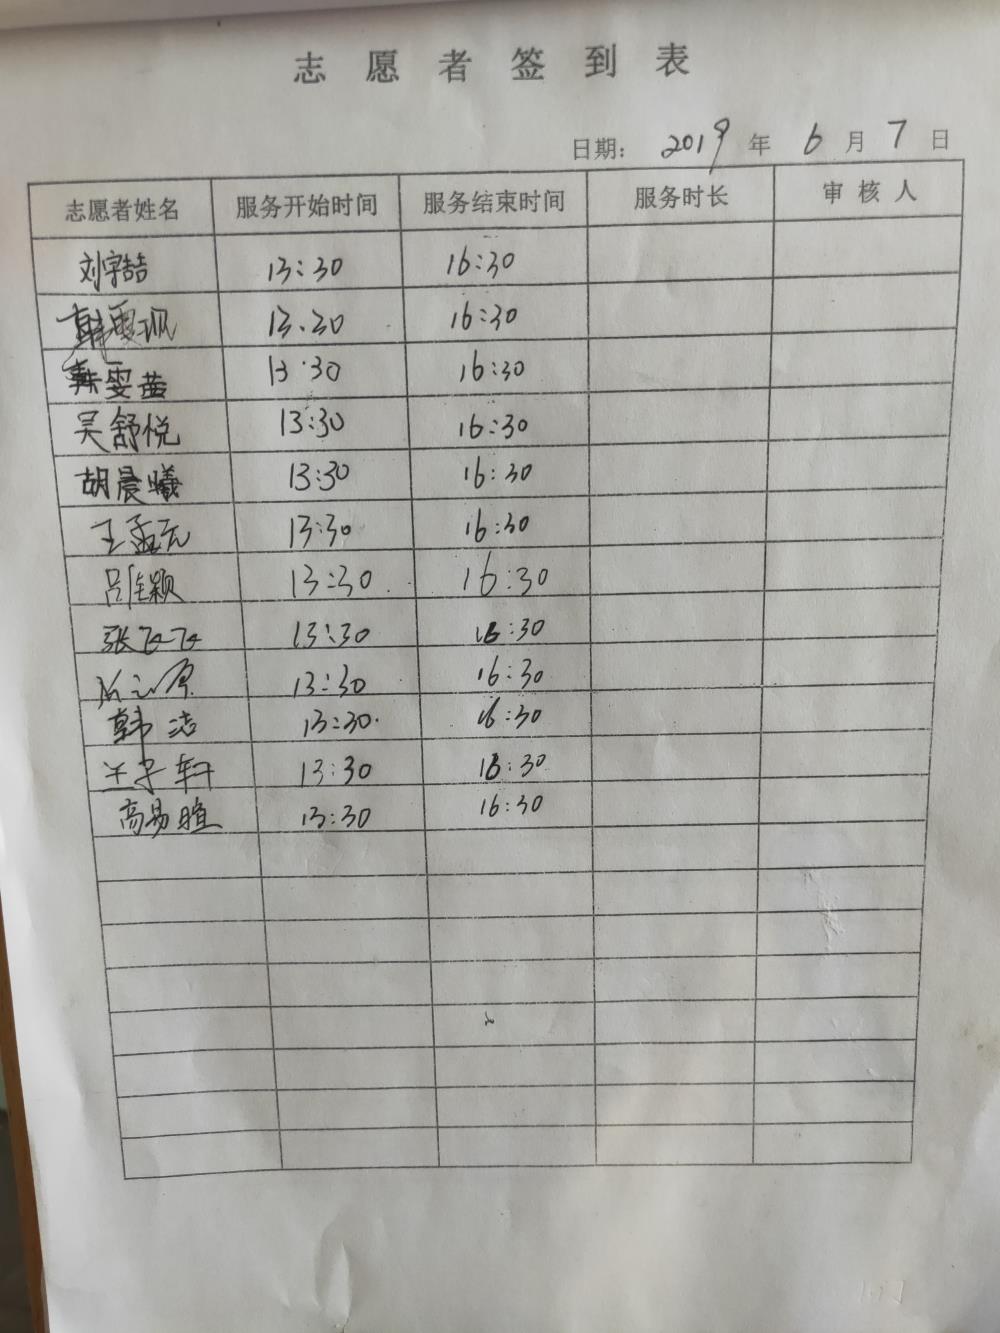 志愿者签到表
日期: 2019 年 6 月 7 日
志愿者姓名 服务开始时间 服务结束时间 服务时长 审核人
刘宇喆 13:30 16:30
13.30 16:30
雯茜 13:30 16:30
吴舒悦 13:30 16:30
胡晨曦 13:30 16:30
王孟元 13:30 16:30
吕佳颖 13:30 16:30
张飞飞 13:30 16:30
13:30 16:30
韩洁 13:30 16:30
王子轩 13:30 16:30
高易暄 13:30 16:30